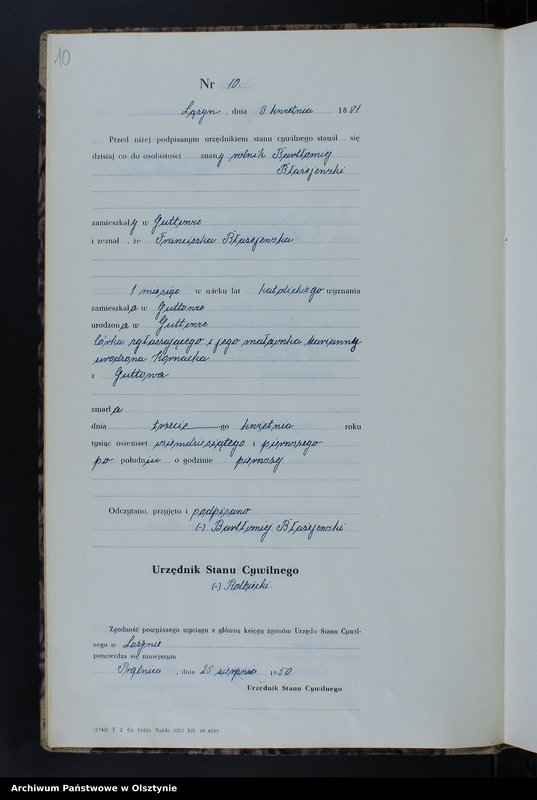 10
Nr 10.
Łążyn, dnia 3 kwietnia 1881
Przed niżej podpisanym urzędnikiem stanu cywilnego stawił się
dzisiaj co do osobistości znany rolnik Bartłomiej
Błażejewski
zamieszkały w Guttowie
i zeznał, że Franciszka Błażejewska
1 miesiąc w wieku lat katolickiego wyznania
zamieszkała w Guttowie
urodzona w Guttowie
córka zgłaszającego i jego małżonka Marianny
urodzona Kornacka
z Guttowa
zmarła
dnia trzecie -go kwietnia roku
tysiąc osiemset osiemdziesiątego i pierwszego
po południu o godzinie pierwszej
Odczytano, przyjęto i podpisano
(-) Bartłomiej Błażejewski
Urzędnik Stanu Cywilnego
(-)
Zgodność powyższego wyciągu z główną księgą zgonów Urzędu Stanu Cywil-
nego w Łążynie
potwierdza się niniejszym
Prątnica, dnia 25 sierpnia 1950
Urzędnik Stanu Cywilnego
(1742) T. Z. Gr. Oddz. Nakło 2202 XII 49 4669
Archiwum Państwowe w Olsztynie